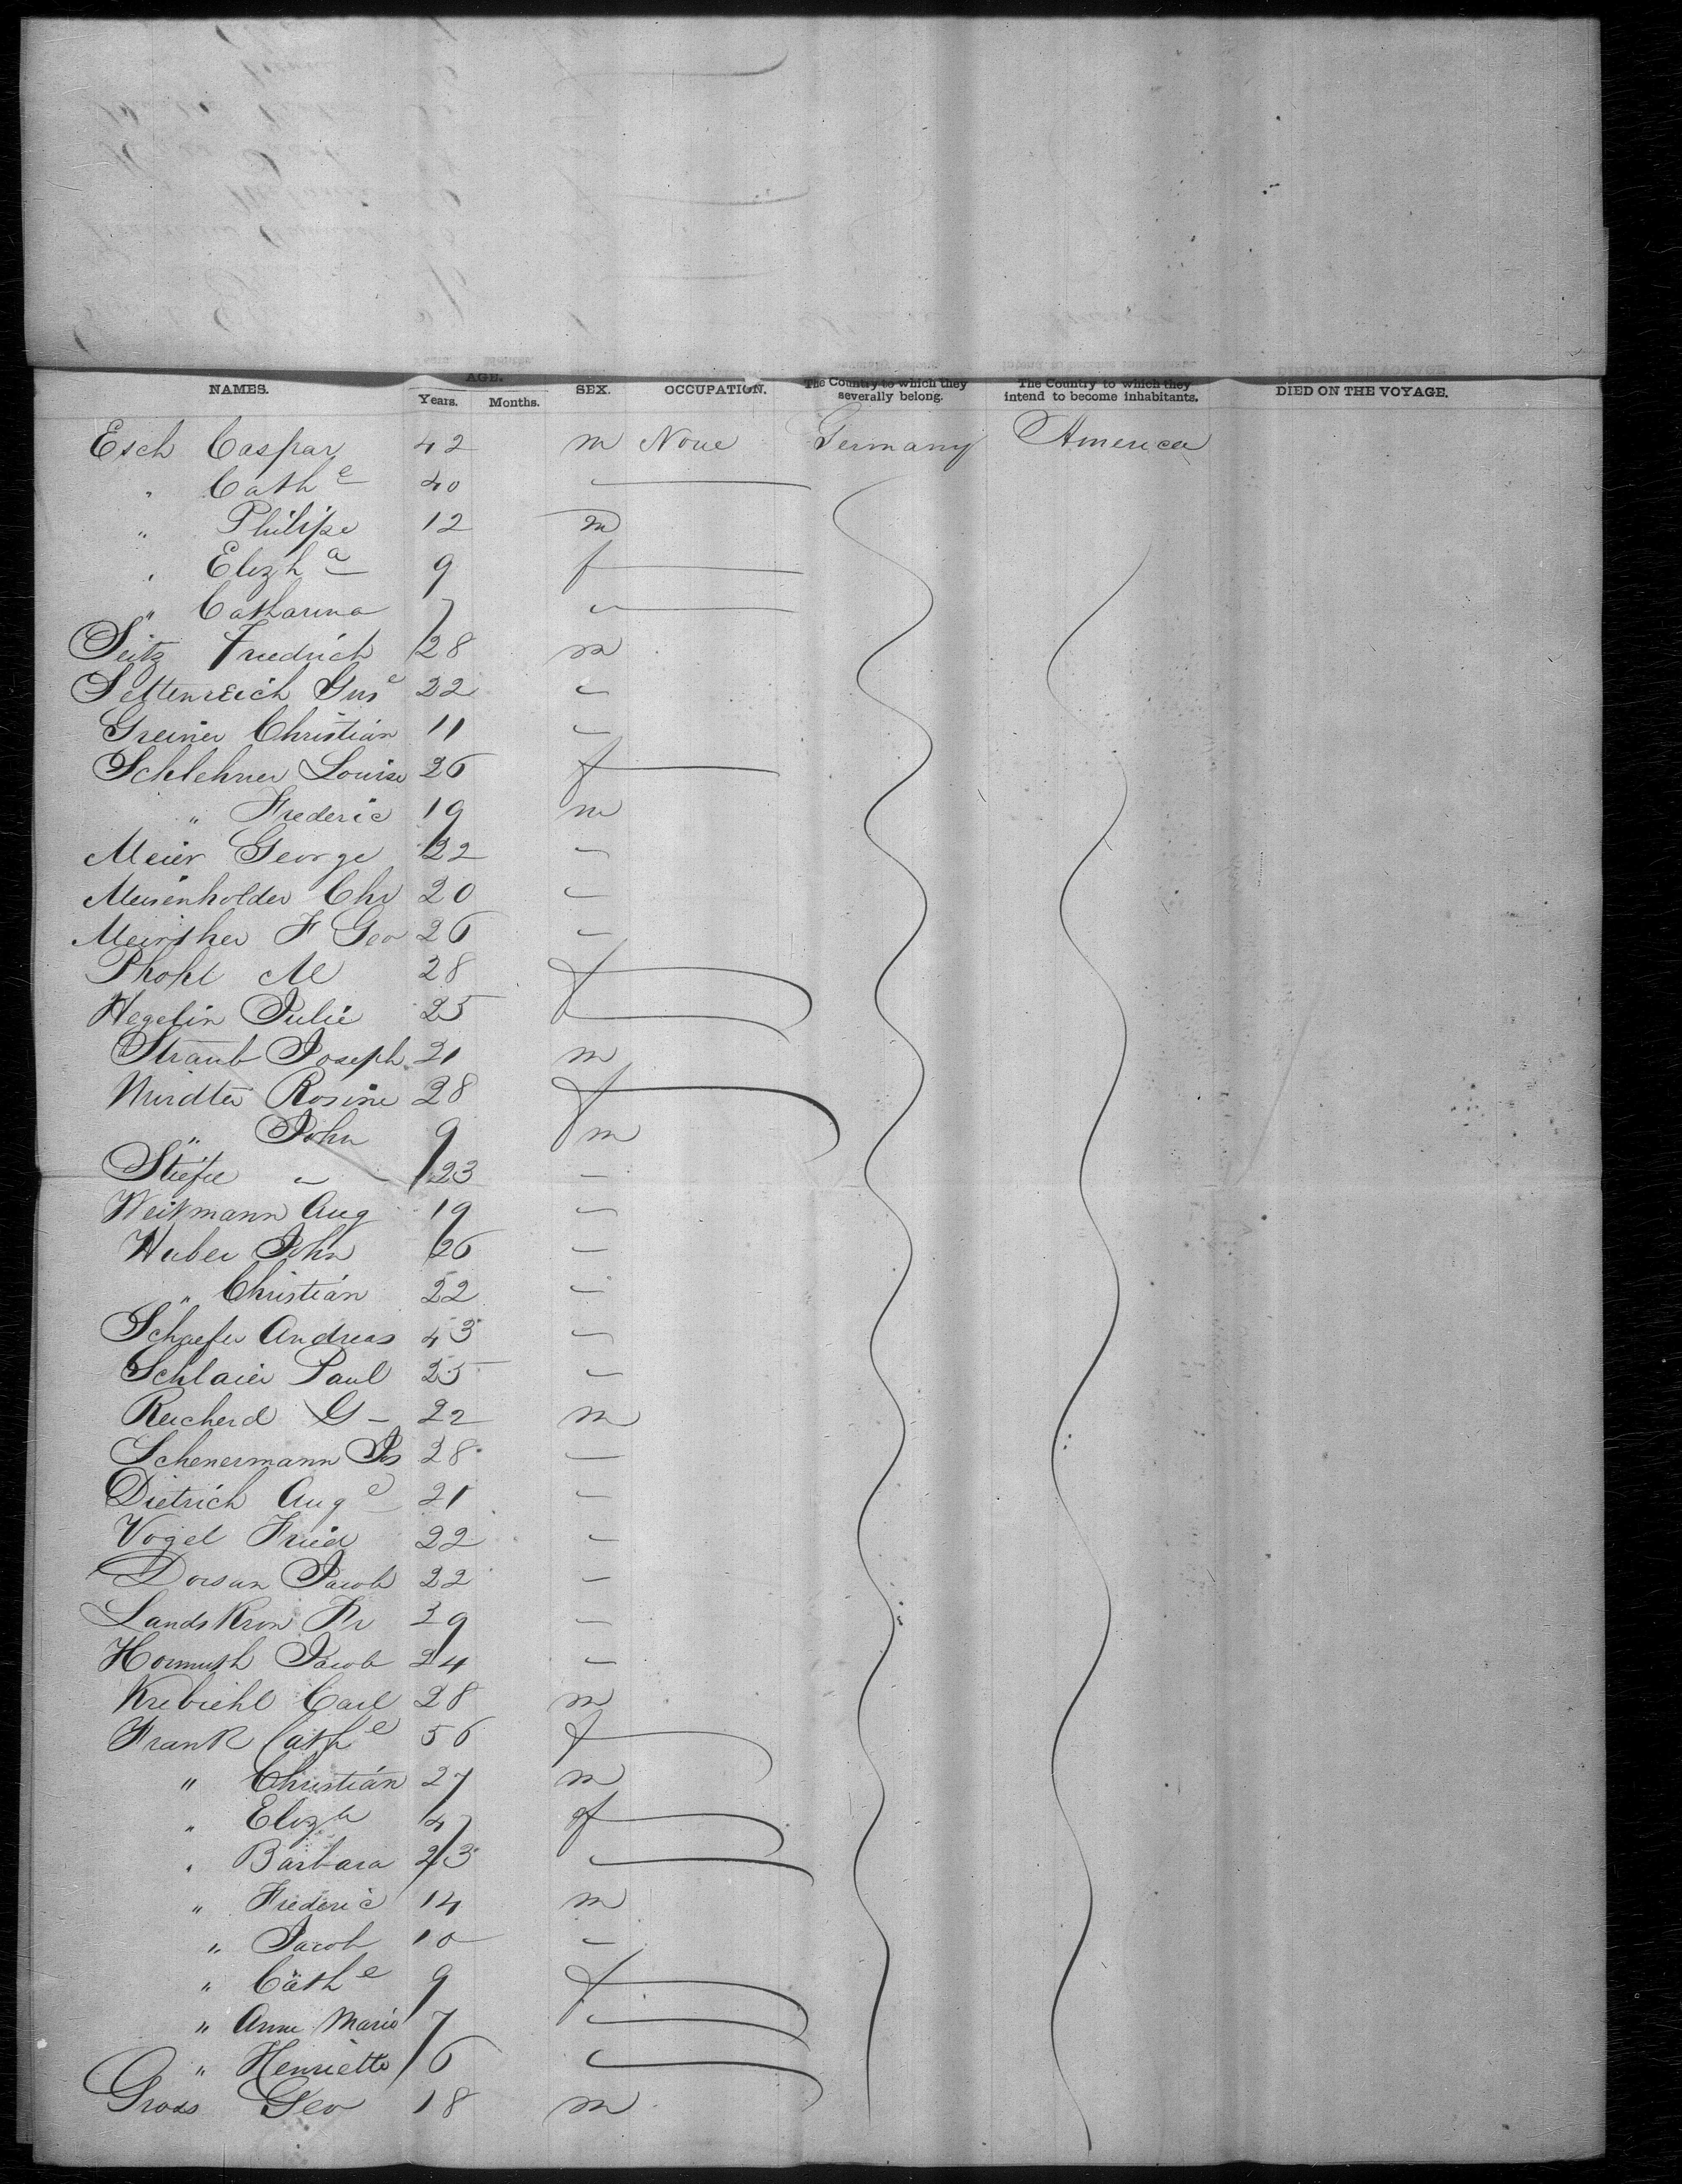 NAMES. AGE. Years. Months. SEX. OCCUPATION. The Country to which they severally belong. The Country to which they intend to become inhabitants. DIED ON THE VOYAGE.
Esch Caspar 42 m None Germany America
" Cathe 40 "
" Philipe 12 m
" Elizha 9 f
" Catharina 7 "
Seitz Friedrich 28 m
Settenreich Guse 22 "
Greiner Christian 11 "
Schlehner Louise 26 f
" Frederic 19 m
Meier George 22 "
Meisenholder Chr 20 "
F Geo 26 "
M 28 f
Hegelin Julie 25 "
Straub Joseph 21 m
Rosine 28 f
" John 9 m
" 23 "
Weikmann Aug 19 "
Huber John 26 "
" Christian 22 "
Schaefer Andreas 43 "
Schlaier Paul 25 "
Reicherd G - 22 m
Schenermann Js 28 "
Dietrich Auge 21 "
Vogel Fried 22 "
Jacob 22 "
LandsKron Fr 29 "
Hormuth Jacob 24 "
Krebiehl Carl 28 m
Frank Cathe 56 f
" Christian 27 m
" Elizh 47 f
" Barbara 23 "
" Frederic 14 m
" Jacob 10 "
" Cathe 9 f
" Anne Marie 7 "
" Henriette 6 "
Gross Geo 18 m